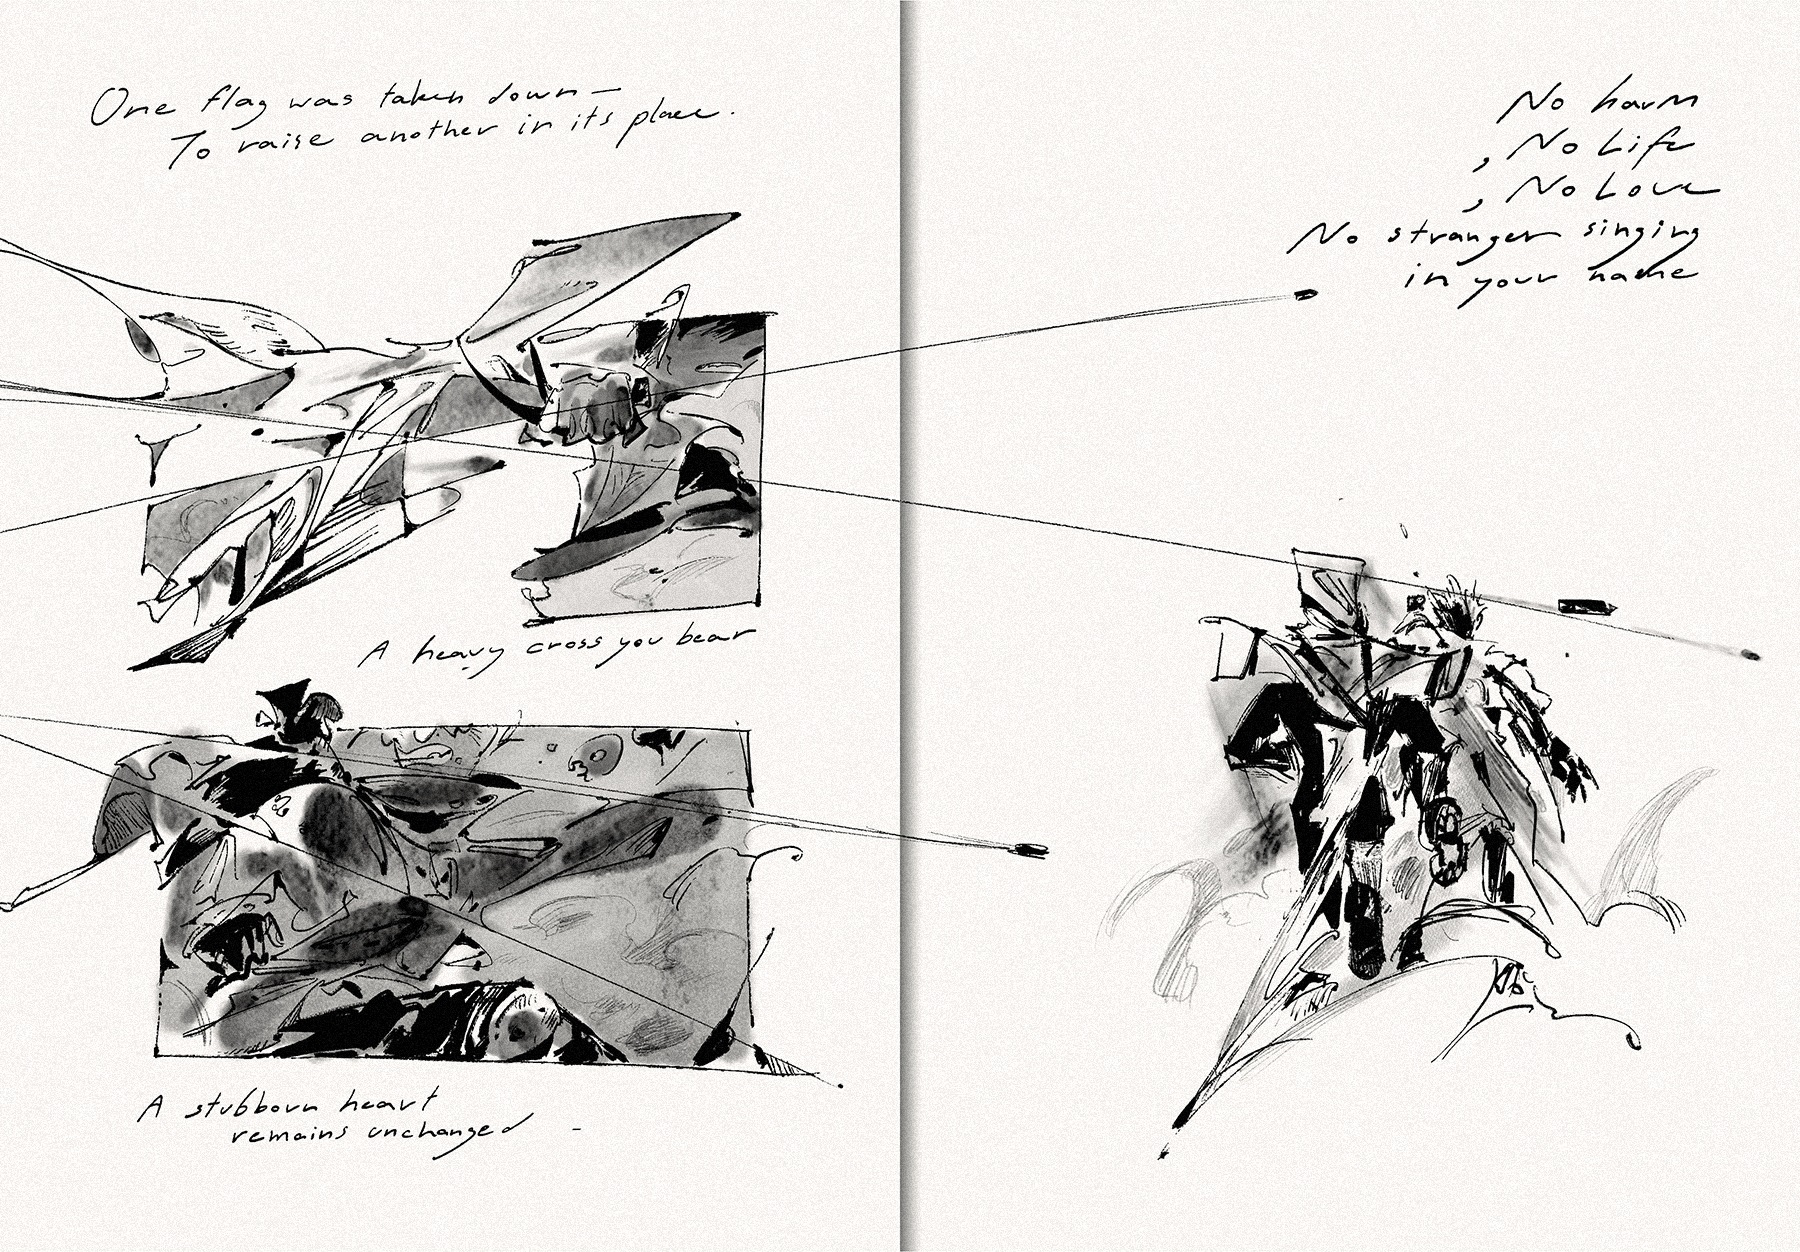 One flag was taken down—
To raise another in its place.
A heavy cross you bear
A stubborn heart
remains unchanged -
No harm
, No Life
, No Love
No stranger singing
in your name